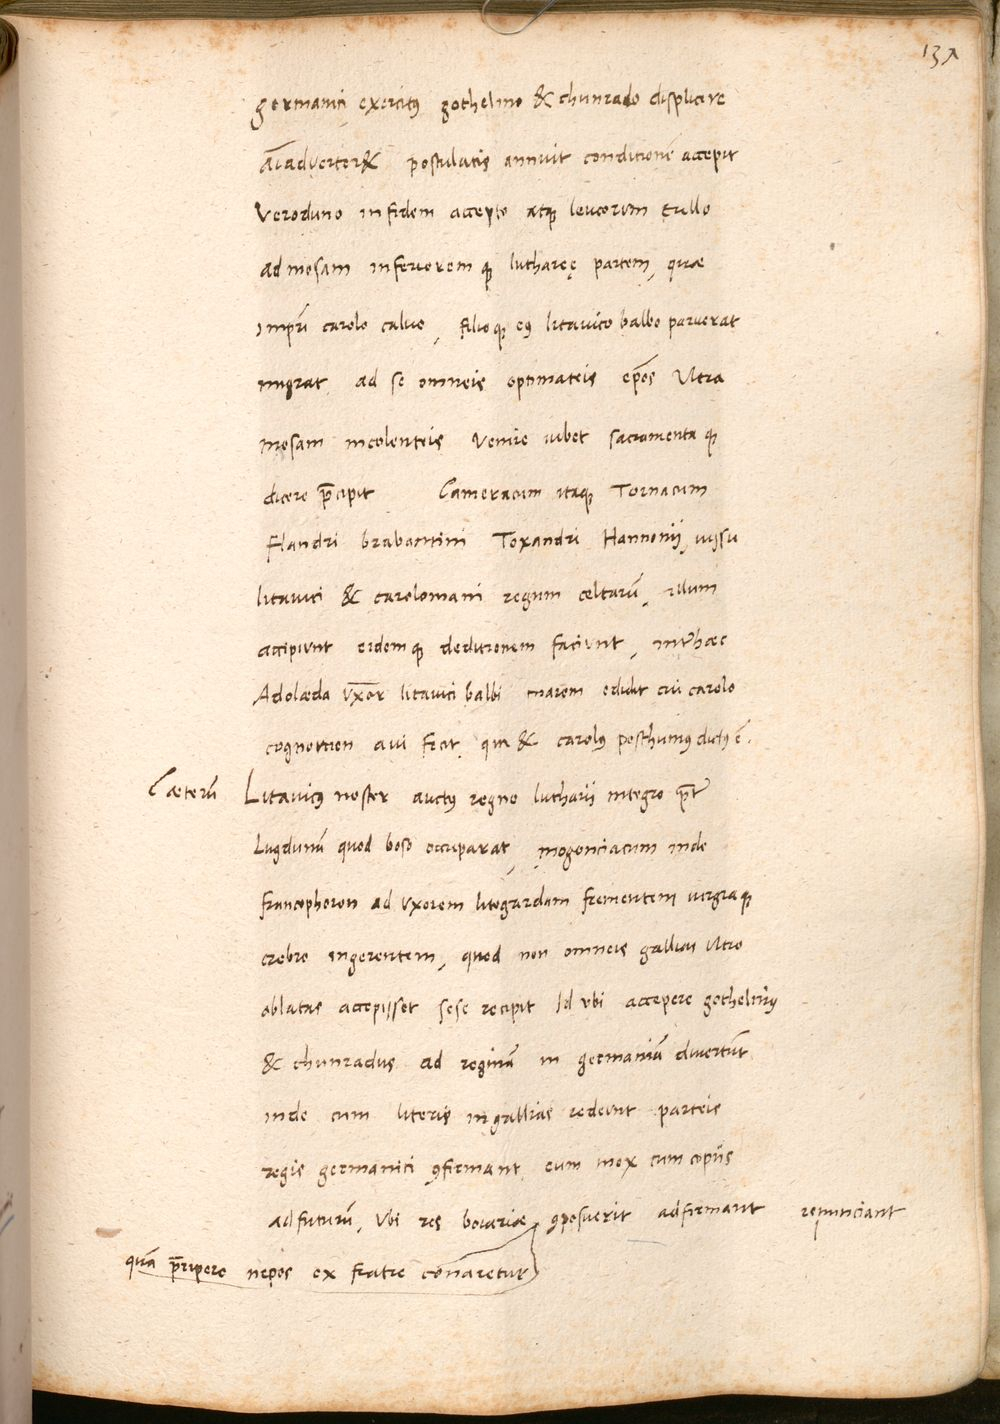 137
germanici exercitus gothelmo & chunrado displicere
Aīadverter& postulatis annuit conditionē accepit
Veroduno in fidem accepto atq leucorum tullo
ad mosam inferiorem q luthareę partem, quae
impri carolo caluo, filioq eius litauico balbo paruerat
migrat ad se omneis optimateis epōs Vltra
mosam incolenteis Venire iubet sacramentaq
dicere p̄cipit Cameracum itaq Tornacum
Flandri brabantini Toxandri Hannonij iussu
litauici & carolomani regum celtarū, illum
accipiunt eidemq deditionem faciunt, interhaec
Adolæda Vxor litauici balbi marem edidit cui carolo
cognomen aui fecit qui & carolus posthumus dictus ē.
Cæterū Litauicus noster auctus regno lutharii integro p̄ter
Lugdunū quod boso occuparat, mogonciacum inde
francophoron ad Vxorem litogardam frementem iurgiaq
crebro ingerentem, quod non omneis gallias Vltro
oblatas accepisset sese recipit Id vbi accepere gothelmus
& chunradus ad reginā in germaniā diuertūt
inde cum literis in gallias redeunt parteis
regis germanici 9firmant eum mox cum copiis
adfuturū, Vbi res boiariae 9posuerit adfirmant renunciant
quā p̄ripere nepos ex fratre conaretur